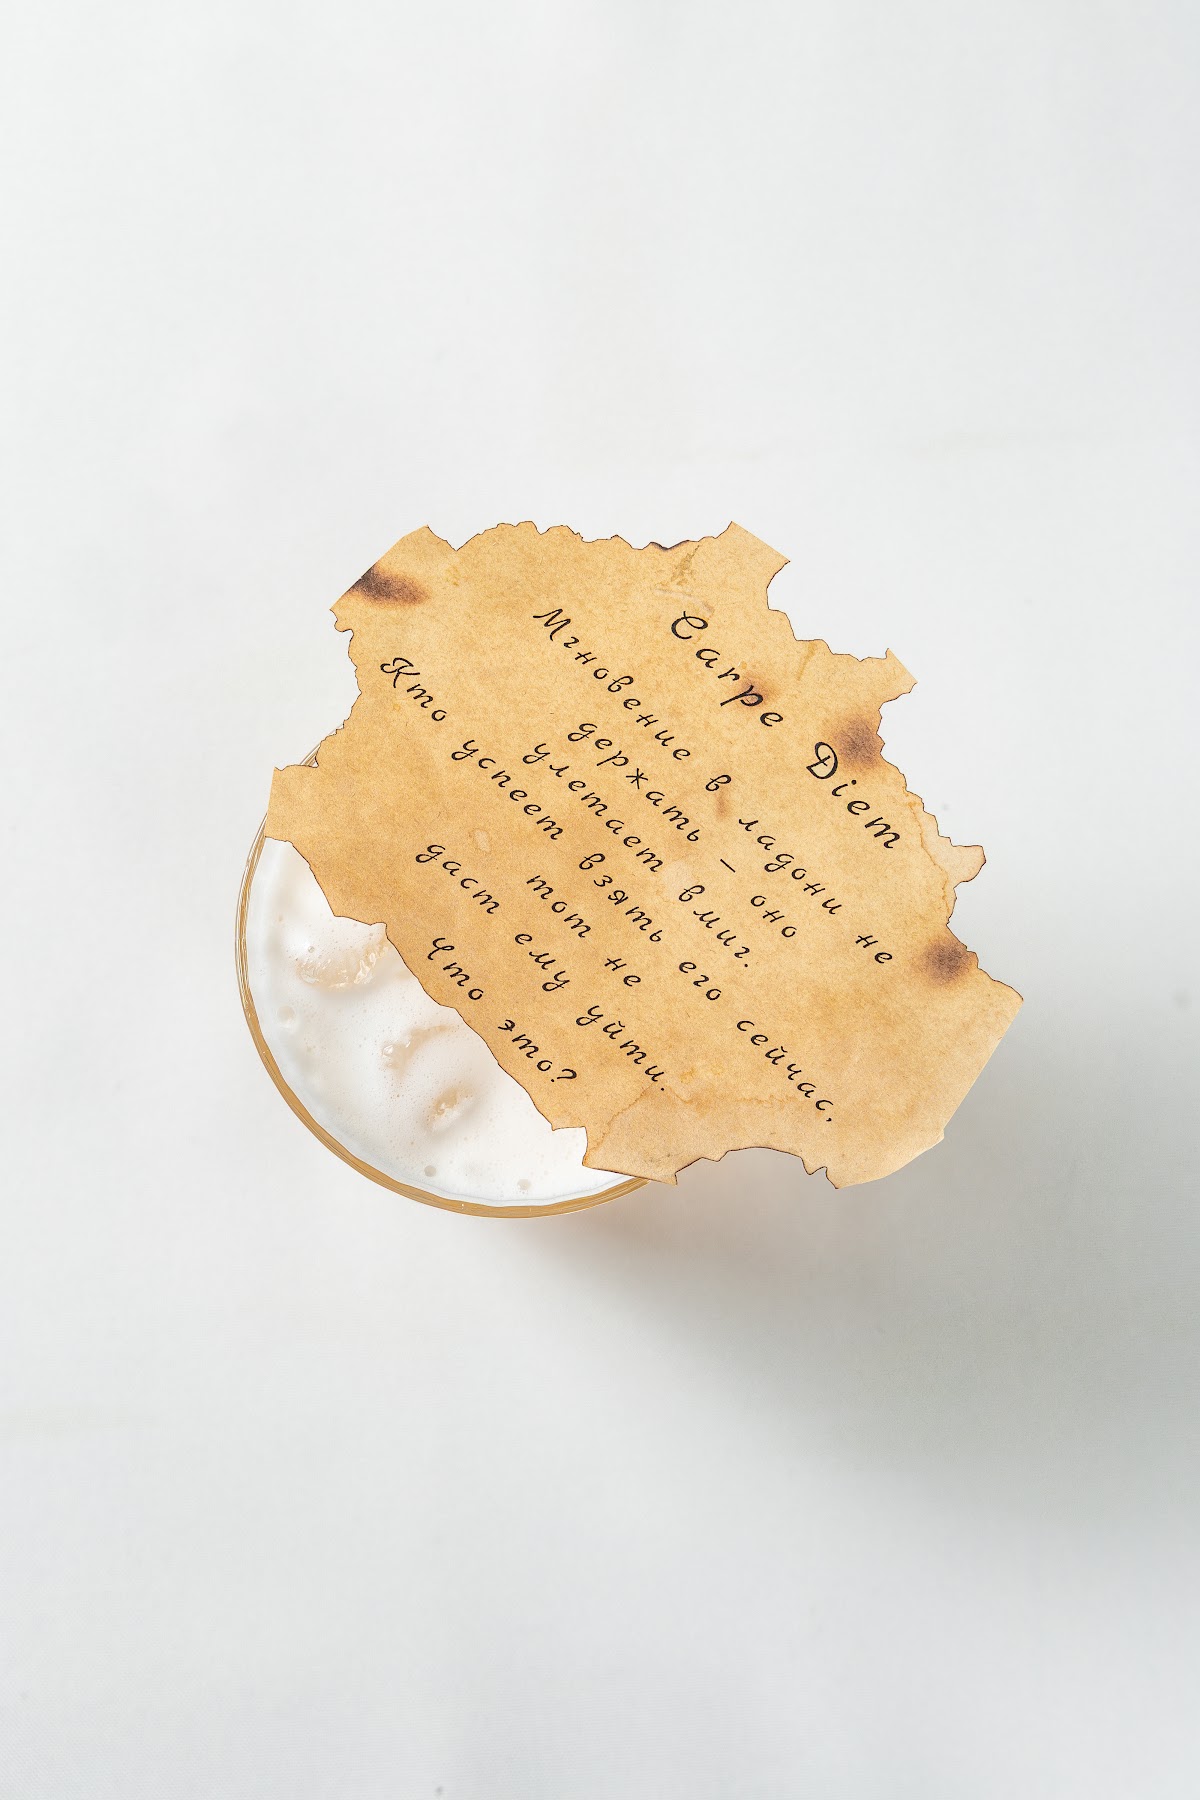 Carpe Diem
Мгновение в ладони не
держать — оно
улетает вмиг.
Кто успеет взять его сейчас,
тот не
даст ему уйти.
Что это?